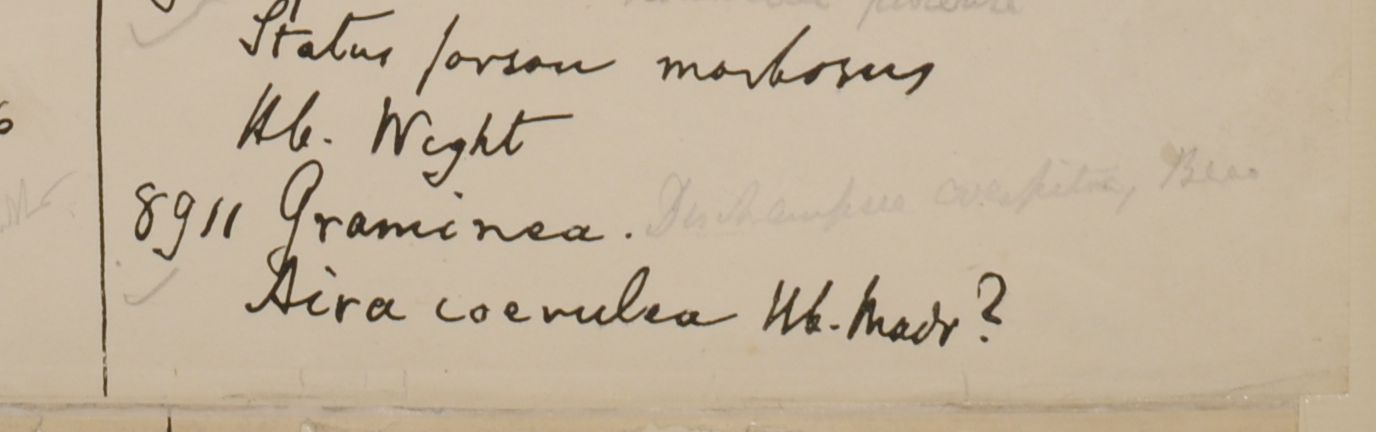 Status forsan morbosus
Hb. Wight
8911 Graminea. Deschampsia caespitosa, Beau
Aira coerulea Hb. Madr?